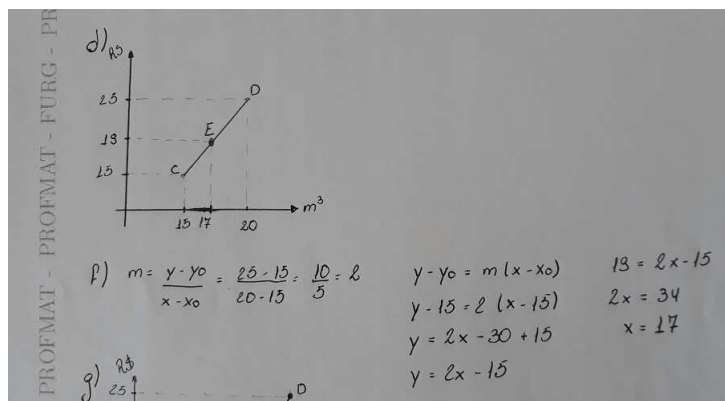 PROFMAT - PROFMAT - FURG - PR
d)
R$
25
19
15
C
E
D
15 17 20
m³
f) m = y - y0 / x - x0 = 25 - 15 / 20 - 15 = 10 / 5 = 2
y - y0 = m (x - x0)
y - 15 = 2 (x - 15)
y = 2x - 30 + 15
y = 2x - 15
19 = 2x - 15
2x = 34
x = 17
g)
R$
25
D